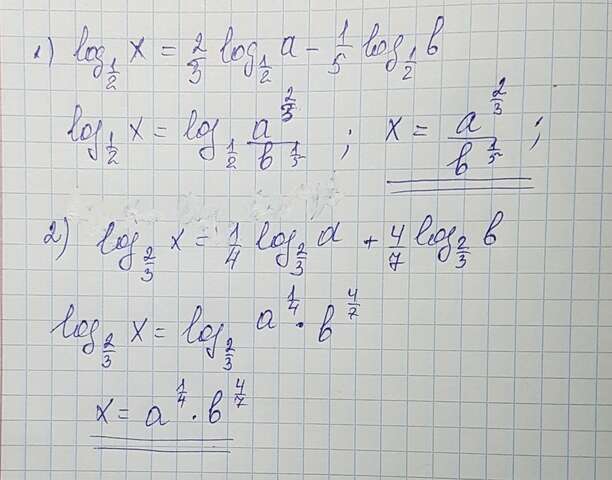 1) log_{1/2} x = 2/3 log_{1/2} a - 1/5 log_{1/2} b
log_{1/2} x = log_{1/2} a^{2/3}/b^{1/5} ; x = a^{2/3}/b^{1/5} ;
2) log_{2/3} x = 1/4 log_{2/3} a + 4/7 log_{2/3} b
log_{2/3} x = log_{2/3} a^{1/4} · b^{4/7}
x = a^{1/4} · b^{4/7}